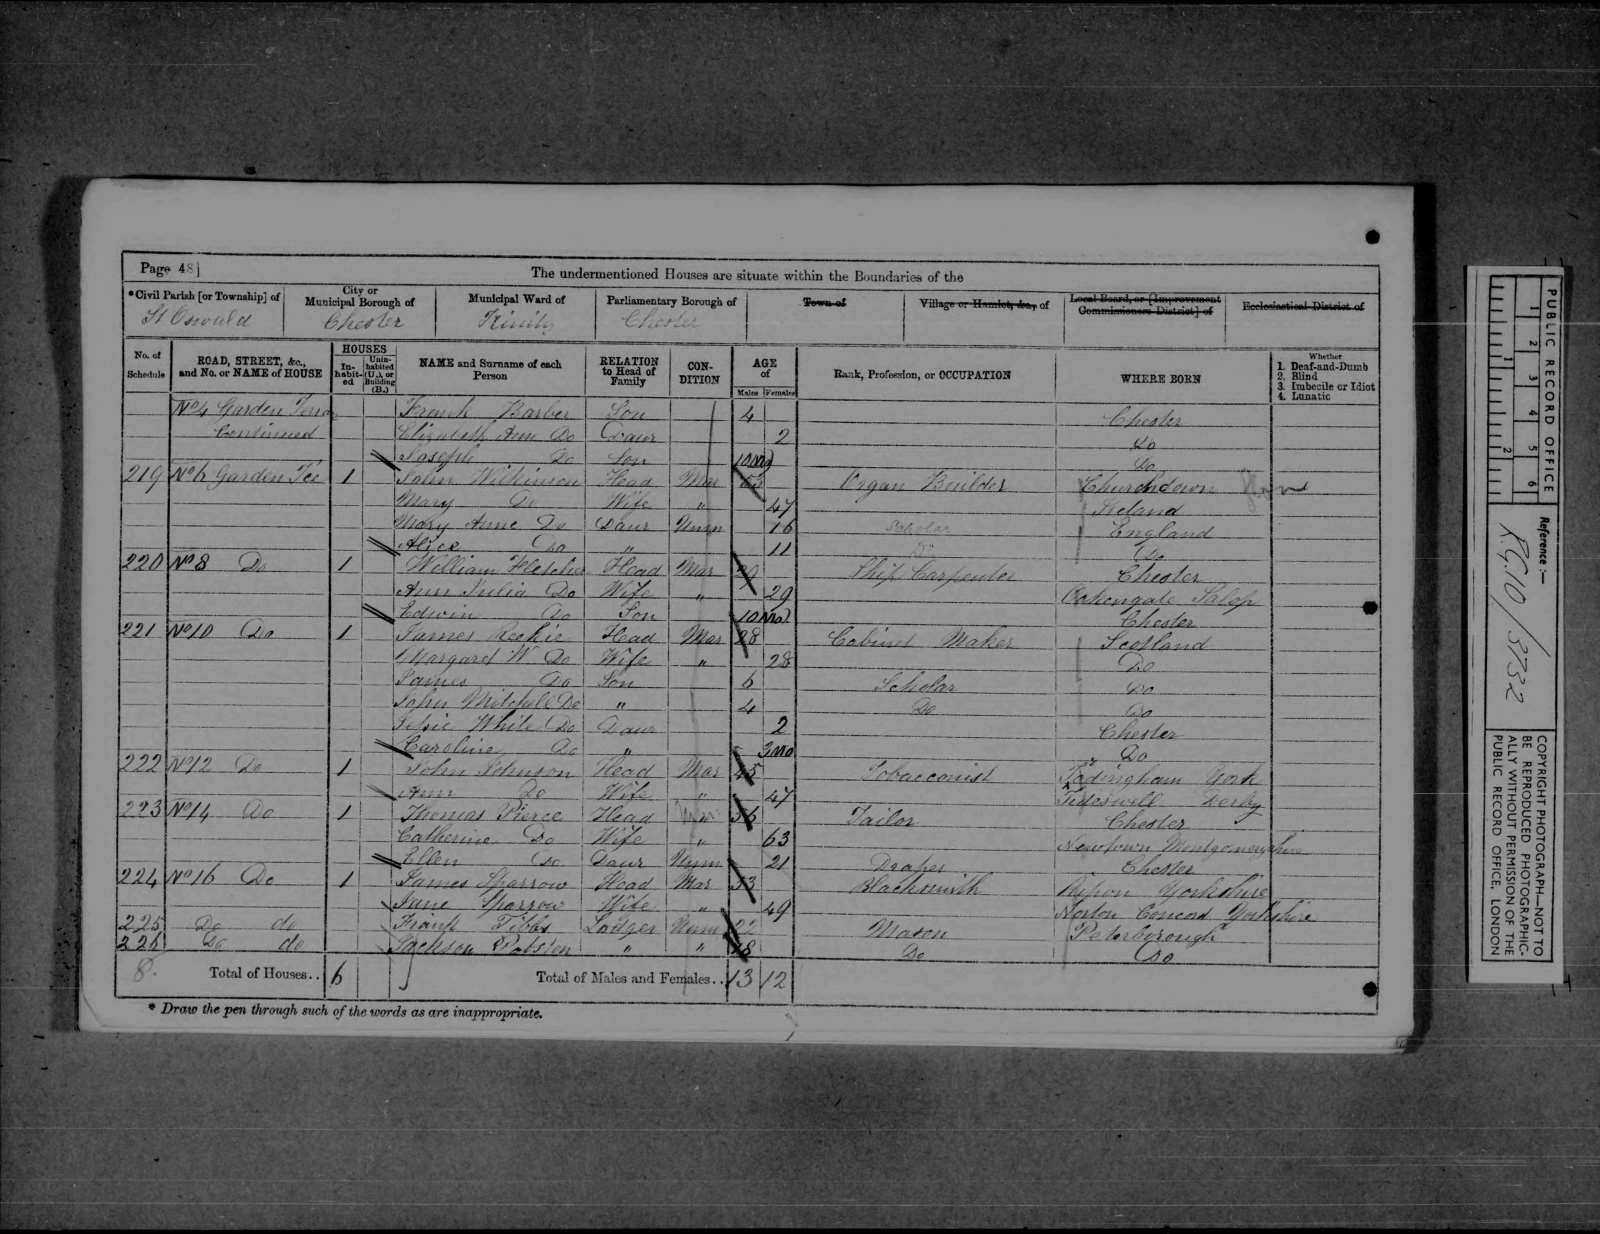 Page 48]
The undermentioned Houses are situate within the Boundaries of the
*Civil Parish [or Township] of
St Oswald
City or Municipal Borough of
Chester
Municipal Ward of
Trinity
Parliamentary Borough of
Chester
Town of
Village or Hamlet, &c., of
Local Board, or [Improvement Commissioners District] of
Ecclesiastical District of
No. of Schedule
ROAD, STREET, &c., and No. or NAME of HOUSE
HOUSES
Inhabited
Uninhabited (U.), or Building (B.)
NAME and Surname of each Person
RELATION to Head of Family
CONDITION
AGE of
Males
Females
Rank, Profession, or OCCUPATION
WHERE BORN
Whether
1. Deaf-and-Dumb
2. Blind
3. Imbecile or Idiot
4. Lunatic
No 4 Garden Barber Son 4 Chester
Continued Elizabeth Ann Do Daur 2 Do
Joseph Do Son 10 Mo Do
219 No 6 Garden Tce 1 John Wilkinson Head Mar Organ Builder Churchdown
Mary Do Wife " 47 Ireland
Mary Anne Do Daur Unm 16 Scholar England
Alice Do " 11 Do Do
220 No 8 Do 1 William Fletcher Head Mar Ship Carpenter Chester
Ann Julia Do Wife " 29 Oakengate Salop
Edwin Do Son 10 Mo Chester
221 No 10 Do 1 James Head Mar 28 Cabinet Maker Scotland
Margaret W Do Wife " 28 Do
James Do Son 6 Scholar Do
John Mitchell Do " 4 Do Do
White Do Daur 2 Chester
Caroline Do " 3 Mo Do
222 No 12 Do 1 John Johnson Head Mar 45 Tobacconist York
Ann Do Wife " 47 Tideswell Derby
223 No 14 Do 1 Thomas Pierce Head Tailor Chester
Catherine Do Wife " 63 Newtown Montgomeryshire
Ellen Do Daur Unm 21 Draper Chester
224 No 16 Do 1 James Sparrow Head Mar 53 Blacksmith Ripon Yorkshire
Jane Sparrow Wife " 49 Norton Yorkshire
225 Do do Frank Tibbs Lodger Unm 22 Mason Peterborough
226 Do do Jackson " " 18 Do Do
8 Total of Houses.. 6 Total of Males and Females.. 13 12
* Draw the pen through such of the words as are inappropriate.
PUBLIC RECORD OFFICE
1 2 3 4 5 6
1 2
Reference :—
R.G. 10/3732
COPYRIGHT PHOTOGRAPH—NOT TO
BE REPRODUCED PHOTOGRAPHIC-
ALLY WITHOUT PERMISSION OF THE
PUBLIC RECORD OFFICE, LONDON